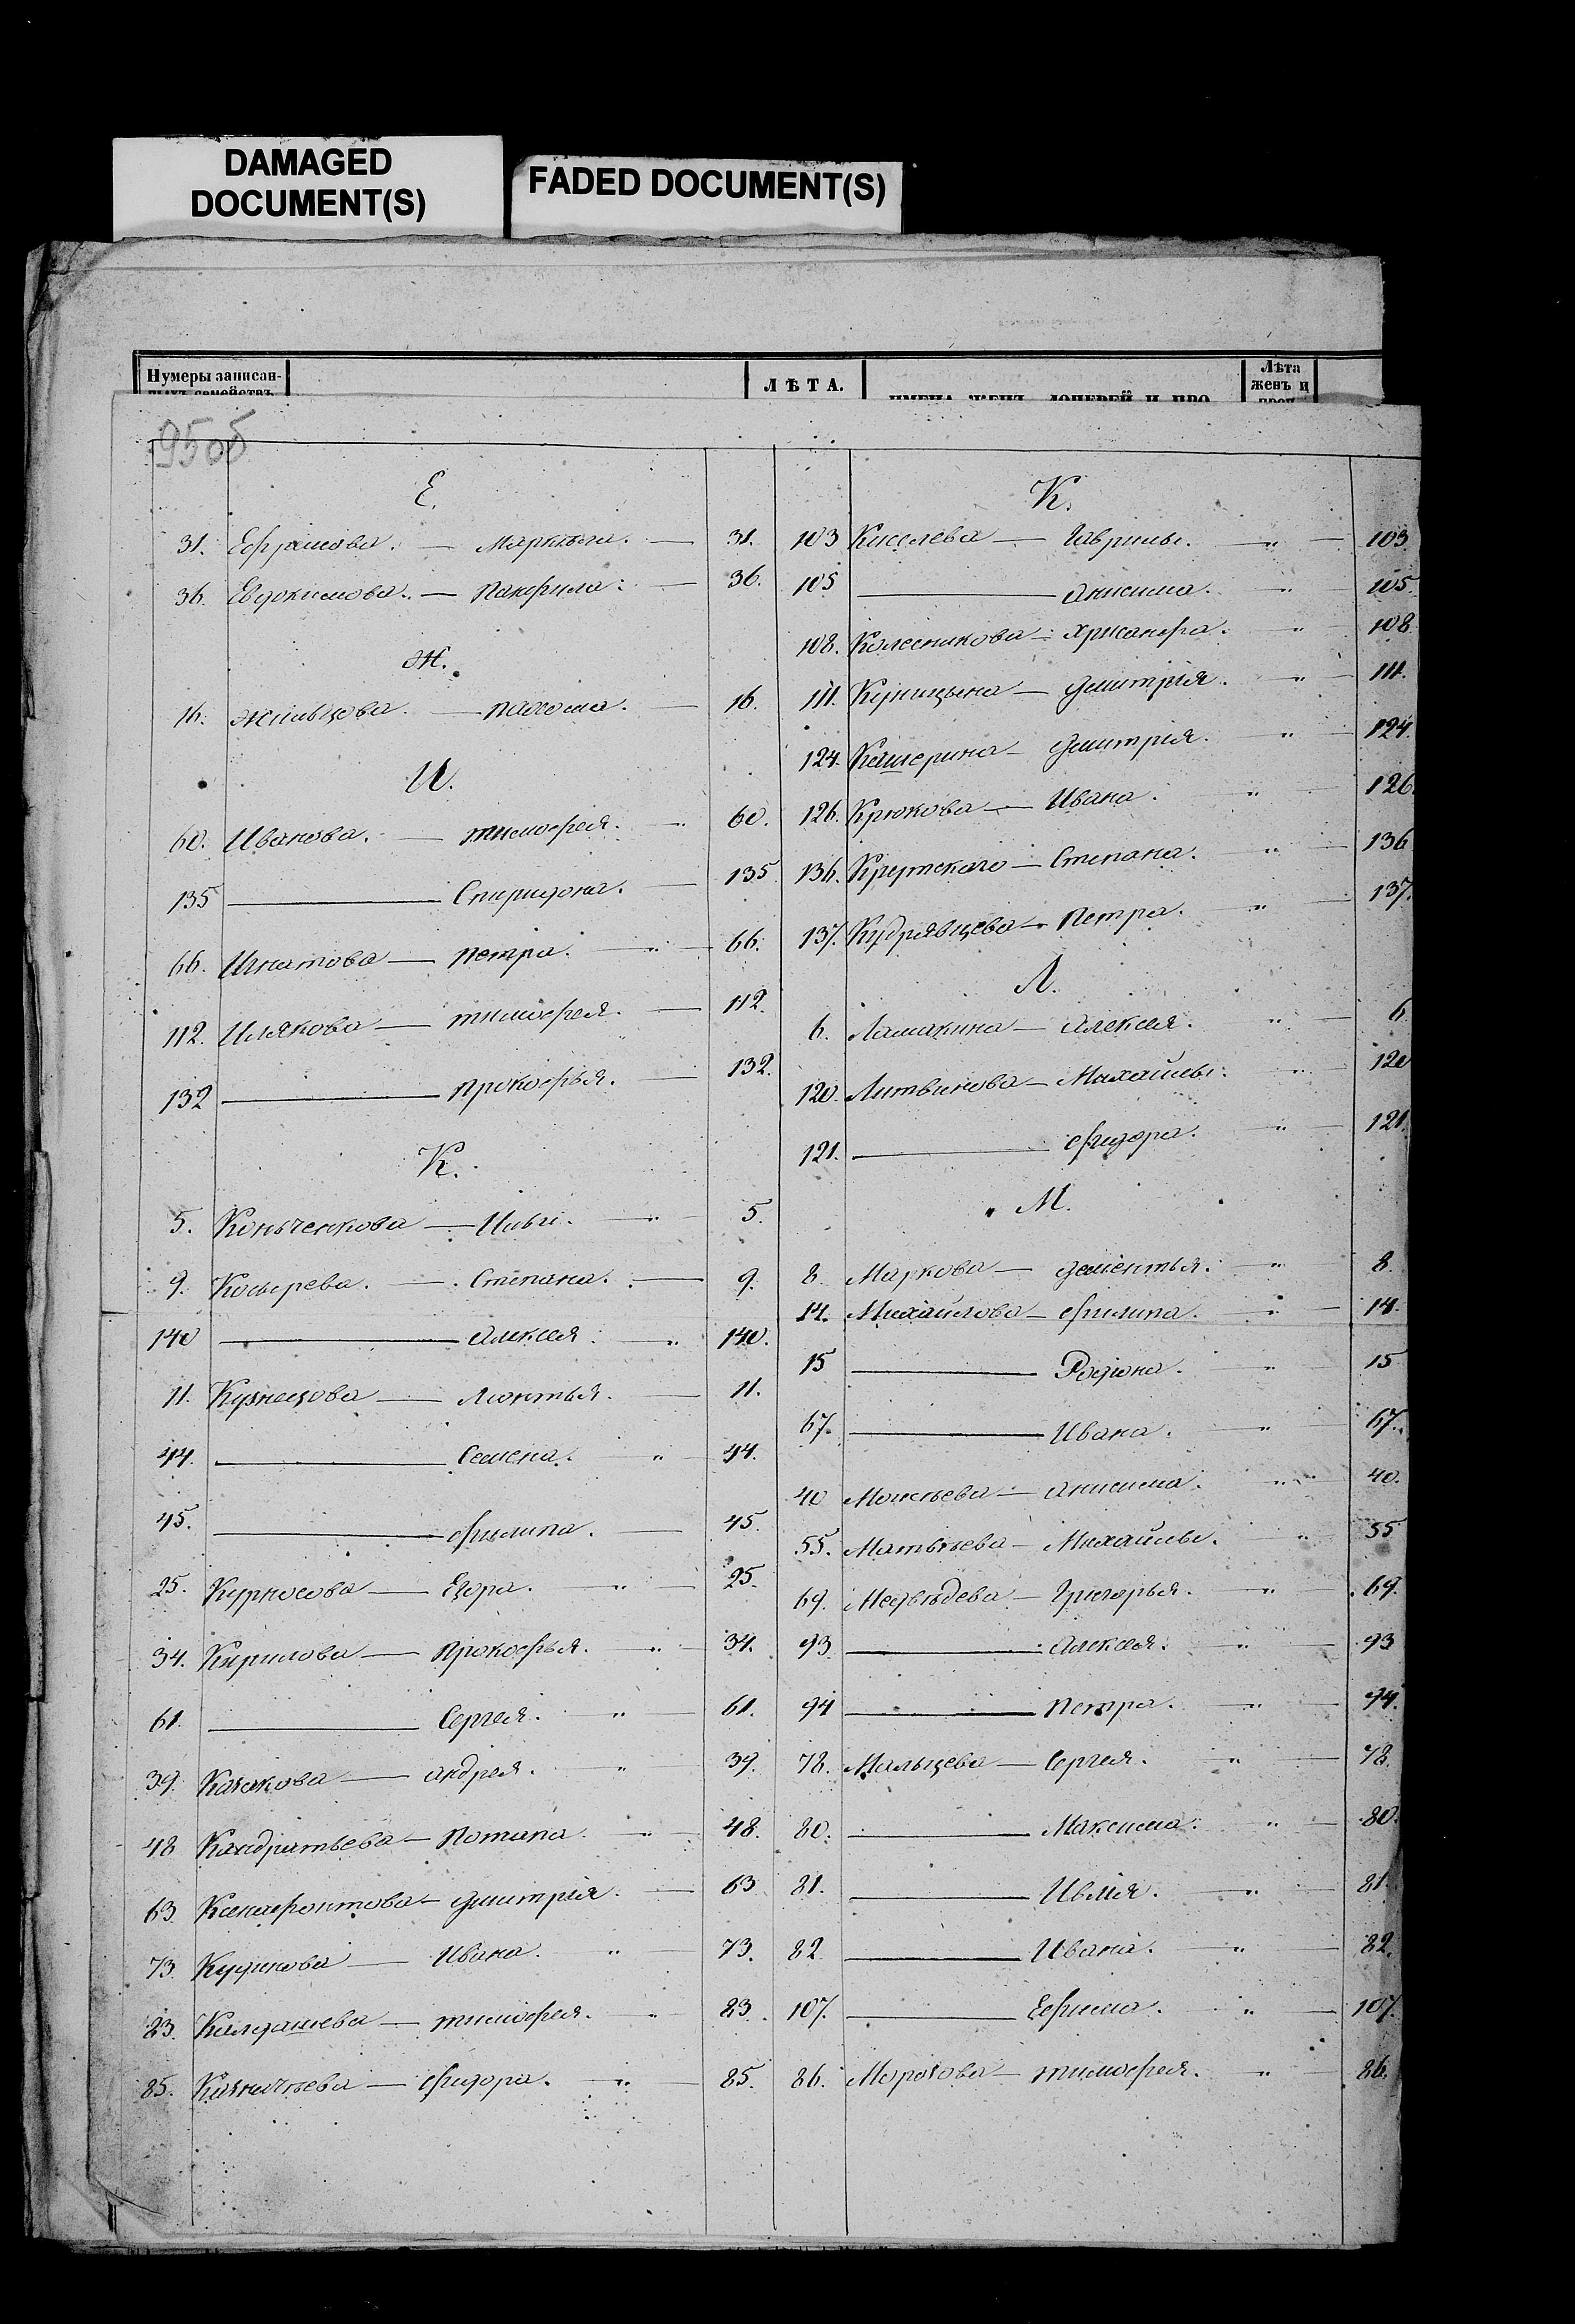 DAMAGED
DOCUMENT(S)
FADED DOCUMENT(S)
Нумеры записан-
ныхъ семействъ
ЛѢТА.
ИМЕНА ЖЕНЪ, ДОЧЕРЕЙ И ПРО
Лѣта
женъ и
проч
95об
Е.
31. Ефрѣмова. — Маркѣла. — 31.
36. Евдокимова. — Панфила. — 36.
Ж.
16. Жильцова. — Пахома. — 16.
И.
60. Иванова. — Тимофея. — 60.
135 — Спиридона. — 135
66. Игнатова — Петра. — " — 66.
112. Илякова — Тимофея. — 112.
132 — Прокофья. — 132.
К.
5. Коньченкова — Ильи. — " — 5.
9. Косырева. — Степана. — 9.
140 — Алексея. — " 140.
11. Кузнецова — Леонтья. — 11.
44. — Семена. " — 44.
45. — Филипа. — 45.
25. Курносова — Егора. — " — 25.
34. Кирилова — Прокофья. — " — 34.
61. — Сергея. — " — 61.
39. Казакова — Андрея. " 39.
48 Кандратьева — Потапа. — " — 48.
63 Ксенофонтова — Дмитрія. — 63
73. Кудинова — Ивана. " — 73.
83. Калдашева — Тимофея. — " 83.
85. Казначѣева — Фидора. — " — 85.
К.
103 Киселева — Гаврилы. — " — 103.
105 — Анисима. — " — 105.
108. Колесникова — Хрисанфа. — " — 108
111. Куницына — Дмитрія. — " — 111.
124. Кашерина — Дмитрія. — " — 124.
126. Крюкова — Ивана. " — 126.
136. Крутскаго — Степана. " — 136
137. Кудрявцева — Петра. — " — 137.
Л.
6. Ламакина — Алексея. " — 6.
120. Литвинова — Михайлы. " — 120
121. — Фидора. — " — 121.
М.
8. Маркова — Дементья. — " 8.
14. Михайлова — Филипа. — " — 14.
15 — Родіона. — " — 15
67. — Ивана. — " — 67.
40 Моисѣева — Анисима. — " — 40.
55. Матвѣева — Михайлы. " 55
69. Медвѣдева — Григорья. — " 69.
93 — Алексея. " — 93
94 — Петра. — " — 94.
78. Мальцева — Сергея. — " — 78.
80. — Максима. — " — 80.
81. — Ивлія. — " — 81.
82 — Ивана. — " — 82.
107. — Ефима. — " — 107.
86. Морозова — Тимофея. — " — 86.